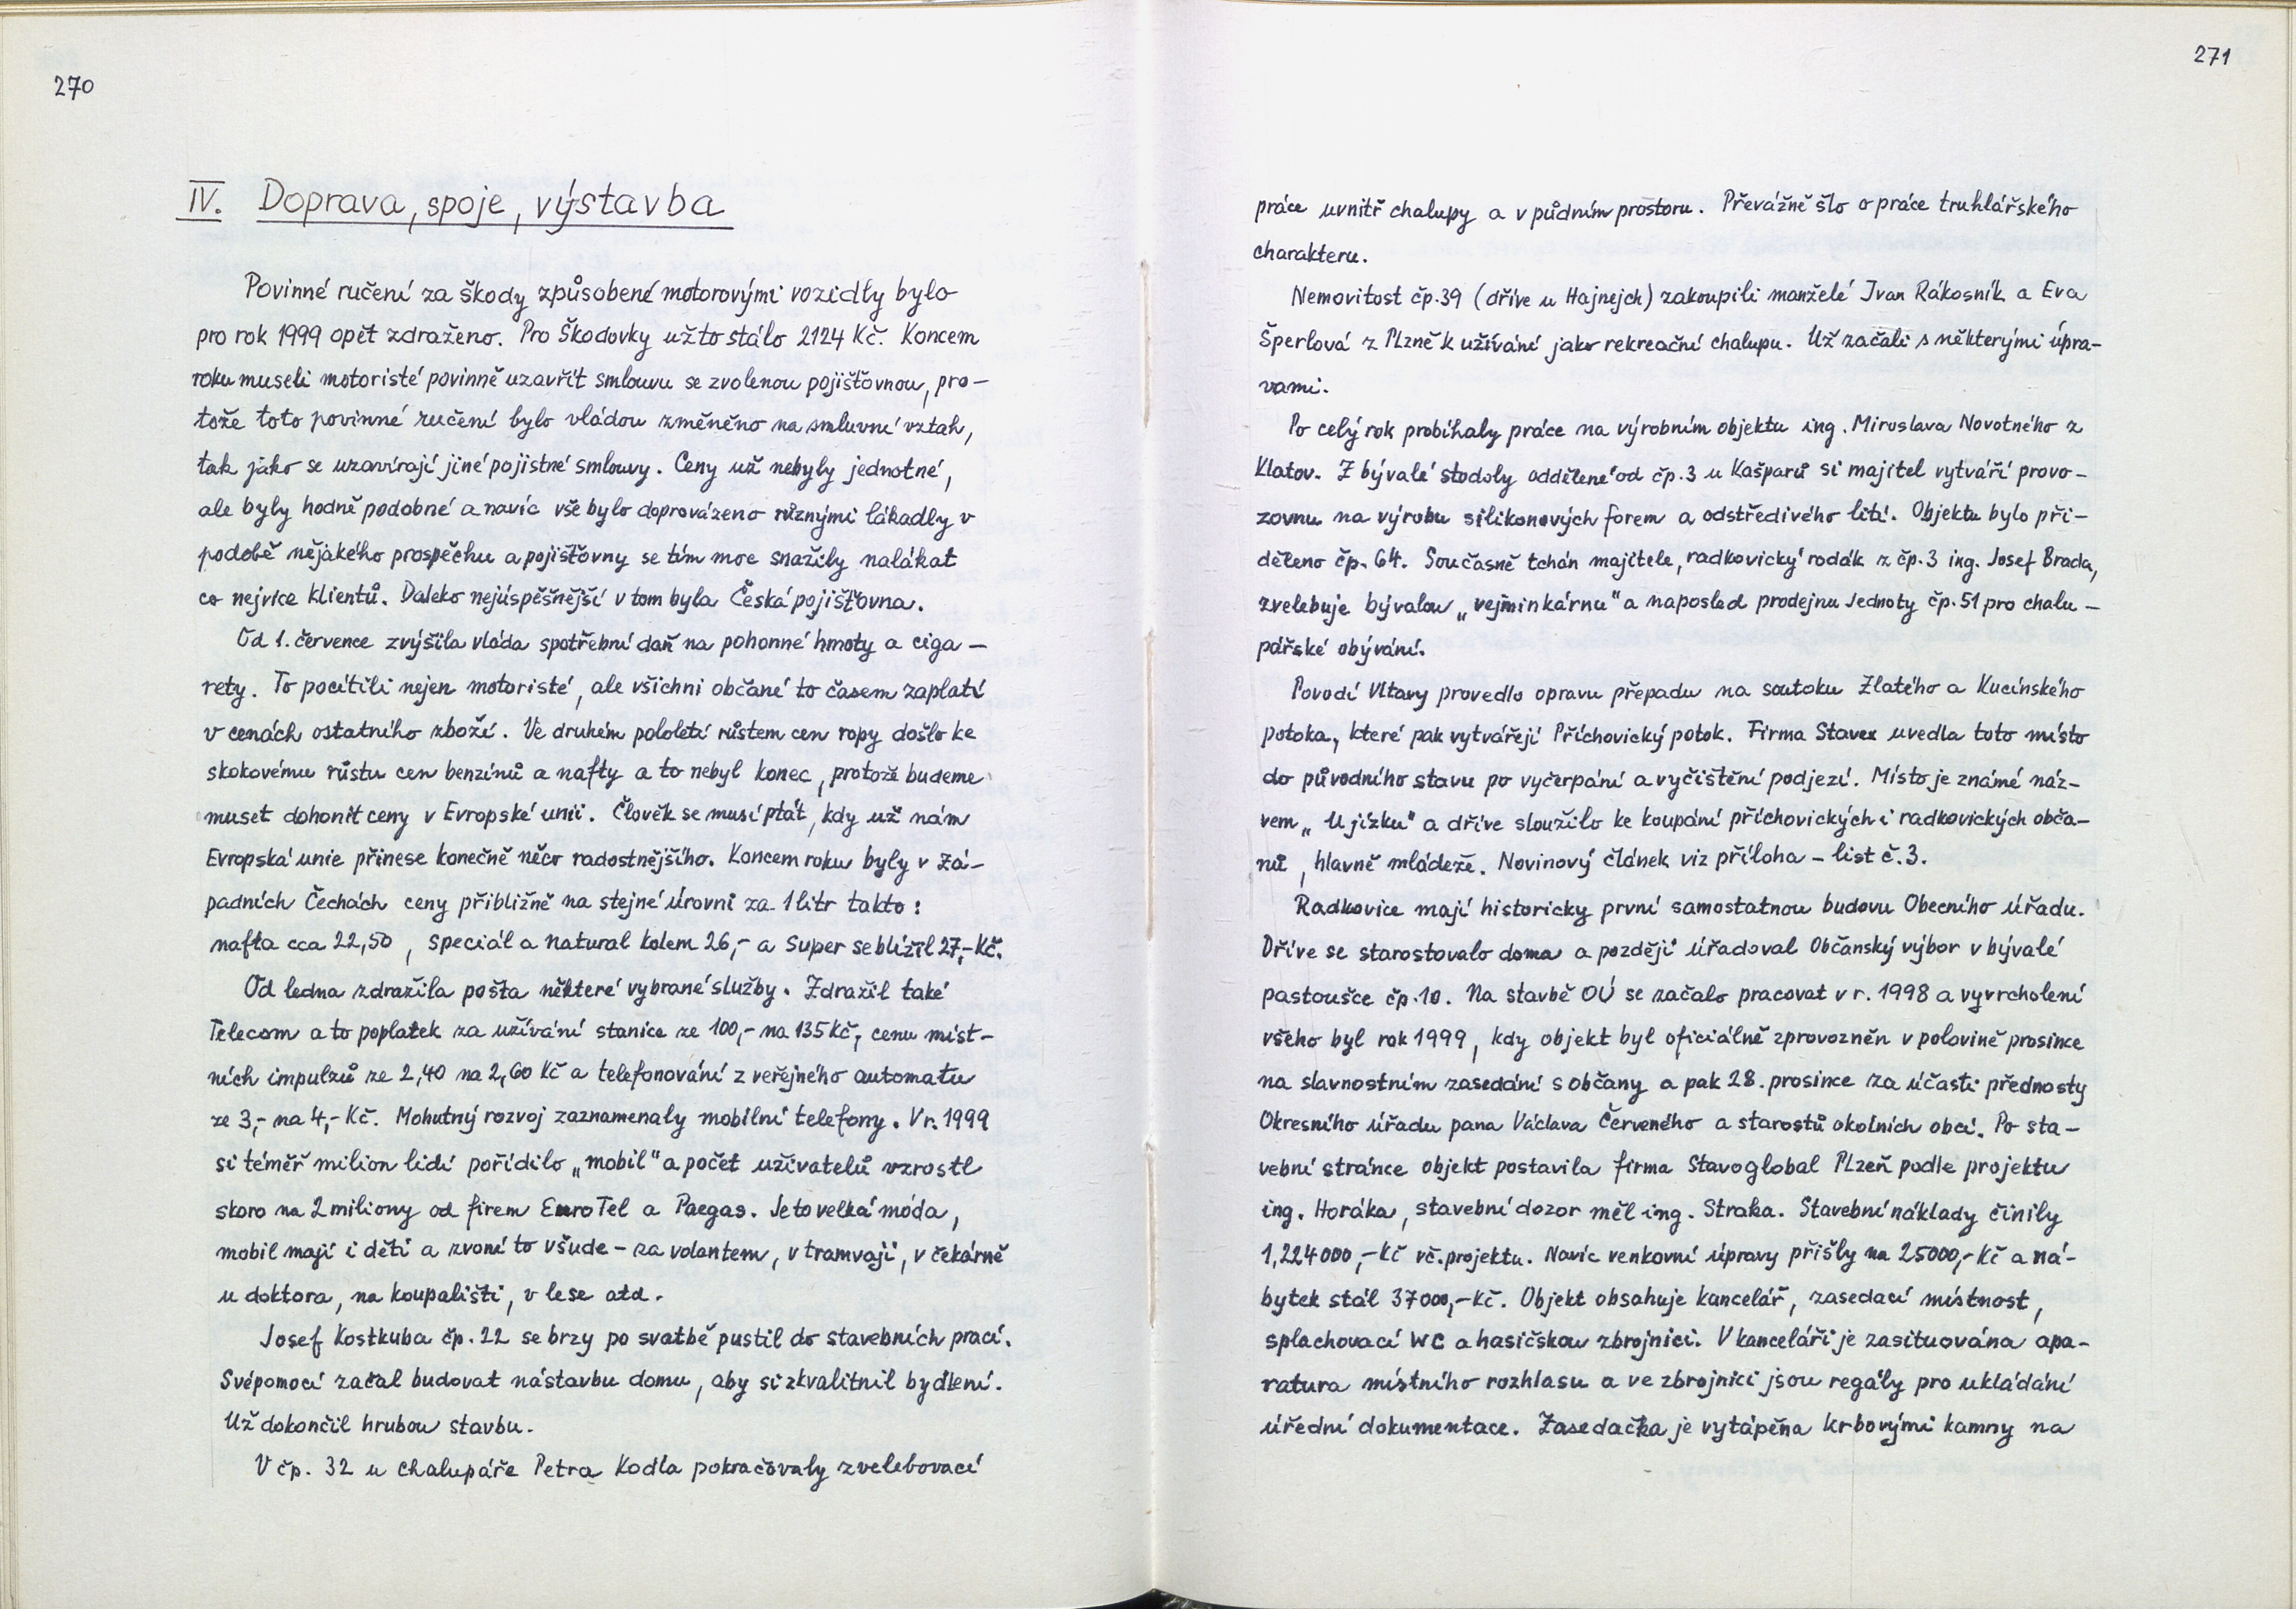 270
IV. Doprava, spoje, výstavba
Povinné ručení za škody způsobené motorovými vozidly bylo
pro rok 1999 opět zdraženo. Pro Škodovky už to stálo 2124 Kč. Koncem
roku museli motoristé povinně uzavřít smlouvu se zvolenou pojišťovnou, pro-
tože toto povinné ručení bylo vládou změněno na smluvní vztah,
tak jako se uzavírají jiné pojistné smlouvy. Ceny už nebyly jednotné,
ale byly hodně podobné a navíc vše bylo doprovázeno různými lákadly v
podobě nějakého prospěchu a pojišťovny se tím moc snažily nalákat
co nejvíce klientů. Daleko nejúspěšnější v tom byla Česká pojišťovna.
Od 1. července zvýšila vláda spotřební daň na pohonné hmoty a ciga-
rety. To pocítili nejen motoristé, ale všichni občané to časem zaplatí
v cenách ostatního zboží. Ve druhém pololetí růstem cen ropy došlo ke
skokovému růstu cen benzínů a nafty a to nebyl konec, protože budeme
muset dohonit ceny v Evropské unii. Člověk se musí ptát, kdy už nám
Evropská unie přinese konečně něco radostnějšího. Koncem roku byly v Zá-
padních Čechách ceny přibližně na stejné úrovni za 1 litr takto:
nafta cca 22,50, speciál a natural kolem 26,- a super se blížil 27,- Kč.
Od ledna zdražila pošta některé vybrané služby. Zdražil také
Telecom a to poplatek za užívání stanice ze 100,- na 135 Kč, cenu míst-
ních impulzů ze 2,40 na 2,60 Kč a telefonování z veřejného automatu
ze 3,- na 4,- Kč. Mohutný rozvoj zaznamenaly mobilní telefony. V r. 1999
si téměř milion lidí pořídilo „mobil" a počet uživatelů vzrostl
skoro na 2 miliony od firem EuroTel a Paegas. Je to velká móda,
mobil mají i děti a zvoní to všude - za volantem, v tramvaji, v čekárně
u doktora, na koupališti, v lese atd.
Josef Kostkuba čp. 22 se brzy po svatbě pustil do stavebních prací.
Svépomocí začal budovat nástavbu domu, aby si zkvalitnil bydlení.
Už dokončil hrubou stavbu.
V čp. 32 u chalupáře Petra Kodla pokračovaly zvelebovací
271
práce uvnitř chalupy a v půdním prostoru. Převážně šlo o práce truhlářského
charakteru.
Nemovitost čp. 39 (dříve u Hajnejch) zakoupili manželé Ivan Rákosník a Eva
Šperlová z Plzně k užívání jako rekreační chalupu. Už začali s některými úpra-
vami.
Po celý rok probíhaly práce na výrobním objektu ing. Miroslava Novotného z
Klatov. Z bývalé stodoly oddělené od čp. 3 u Kašparů si majitel vytváří provo-
zovnu na výrobu silikonových forem a odstředivého lití. Objektu bylo při-
děleno čp. 64. Současně tchán majitele, radkovický rodák z čp. 3 ing. Josef Brada,
zvelebuje bývalou „vejminkárnu" a naposled prodejnu Jednoty čp. 51 pro chalu-
pářské obývání.
Povodí Vltavy provedlo opravu přepadu na soutoku Zlatého a Kucínského
potoka, které pak vytvářejí Příchovický potok. Firma Stavex uvedla toto místo
do původního stavu po vyčerpání a vyčištění podjezí. Místo je známé náz-
vem „U jízku" a dříve sloužilo ke koupání příchovických i radkovických obča-
nů, hlavně mládeže. Novinový článek viz příloha - list č. 3.
Radkovice mají historicky první samostatnou budovu Obecního úřadu.
Dříve se starostovalo doma a později úřadoval Občanský výbor v bývalé
pastoušce čp. 10. Na stavbě OÚ se začalo pracovat v r. 1998 a vyvrcholení
všeho byl rok 1999, kdy objekt byl oficiálně zprovozněn v polovině prosince
na slavnostním zasedání s občany a pak 28. prosince za účasti přednosty
Okresního úřadu pana Václava Červeného a starostů okolních obcí. Po sta-
vební stránce objekt postavila firma Stavoglobal Plzeň podle projektu
ing. Horáka, stavební dozor měl ing. Straka. Stavební náklady činily
1,224000,- Kč vč. projektu. Navíc venkovní úpravy přišly na 25000,- Kč a ná-
bytek stál 37000,- Kč. Objekt obsahuje kancelář, zasedací místnost,
splachovací WC a hasičskou zbrojnici. V kanceláři je zasituována apa-
ratura místního rozhlasu a ve zbrojnici jsou regály pro ukládání
úřední dokumentace. Zasedačka je vytápěna krbovými kamny na